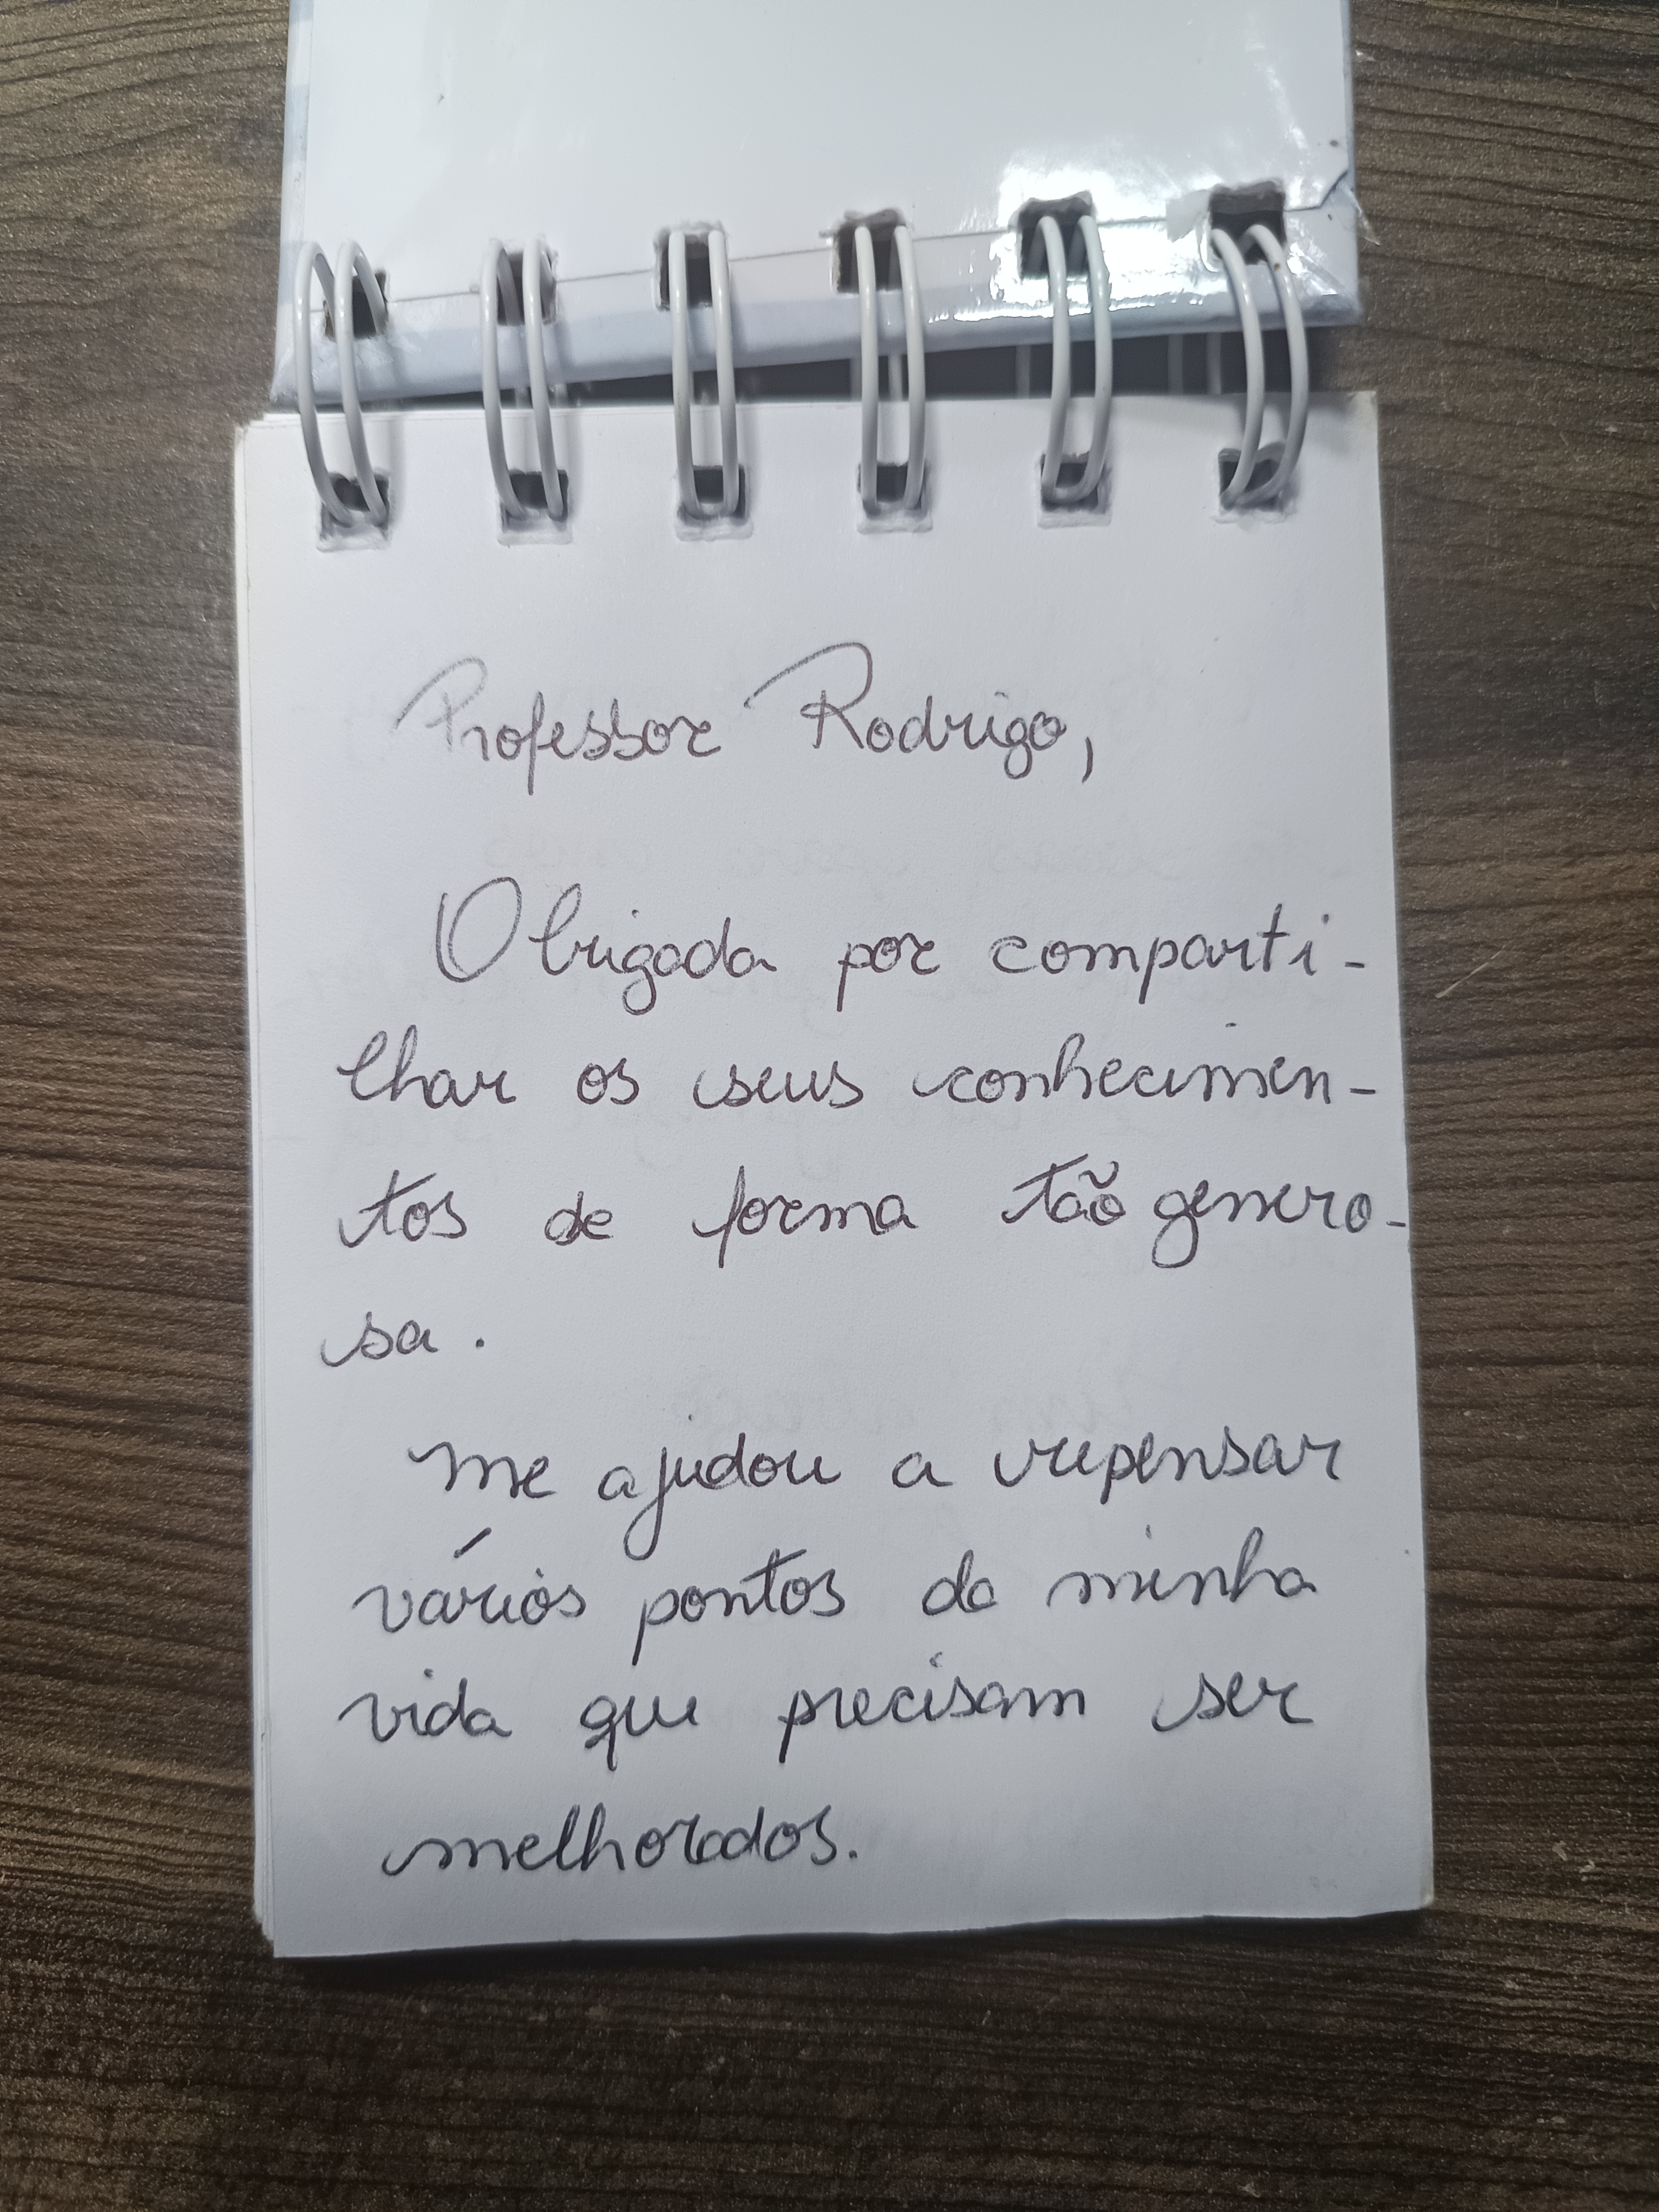 Professor Rodrigo,
Obrigada por comparti-
lhar os seus conhecimen-
tos de forma tão genero-
sa.
Me ajudou a repensar
vários pontos da minha
vida que precisam ser
melhorados.